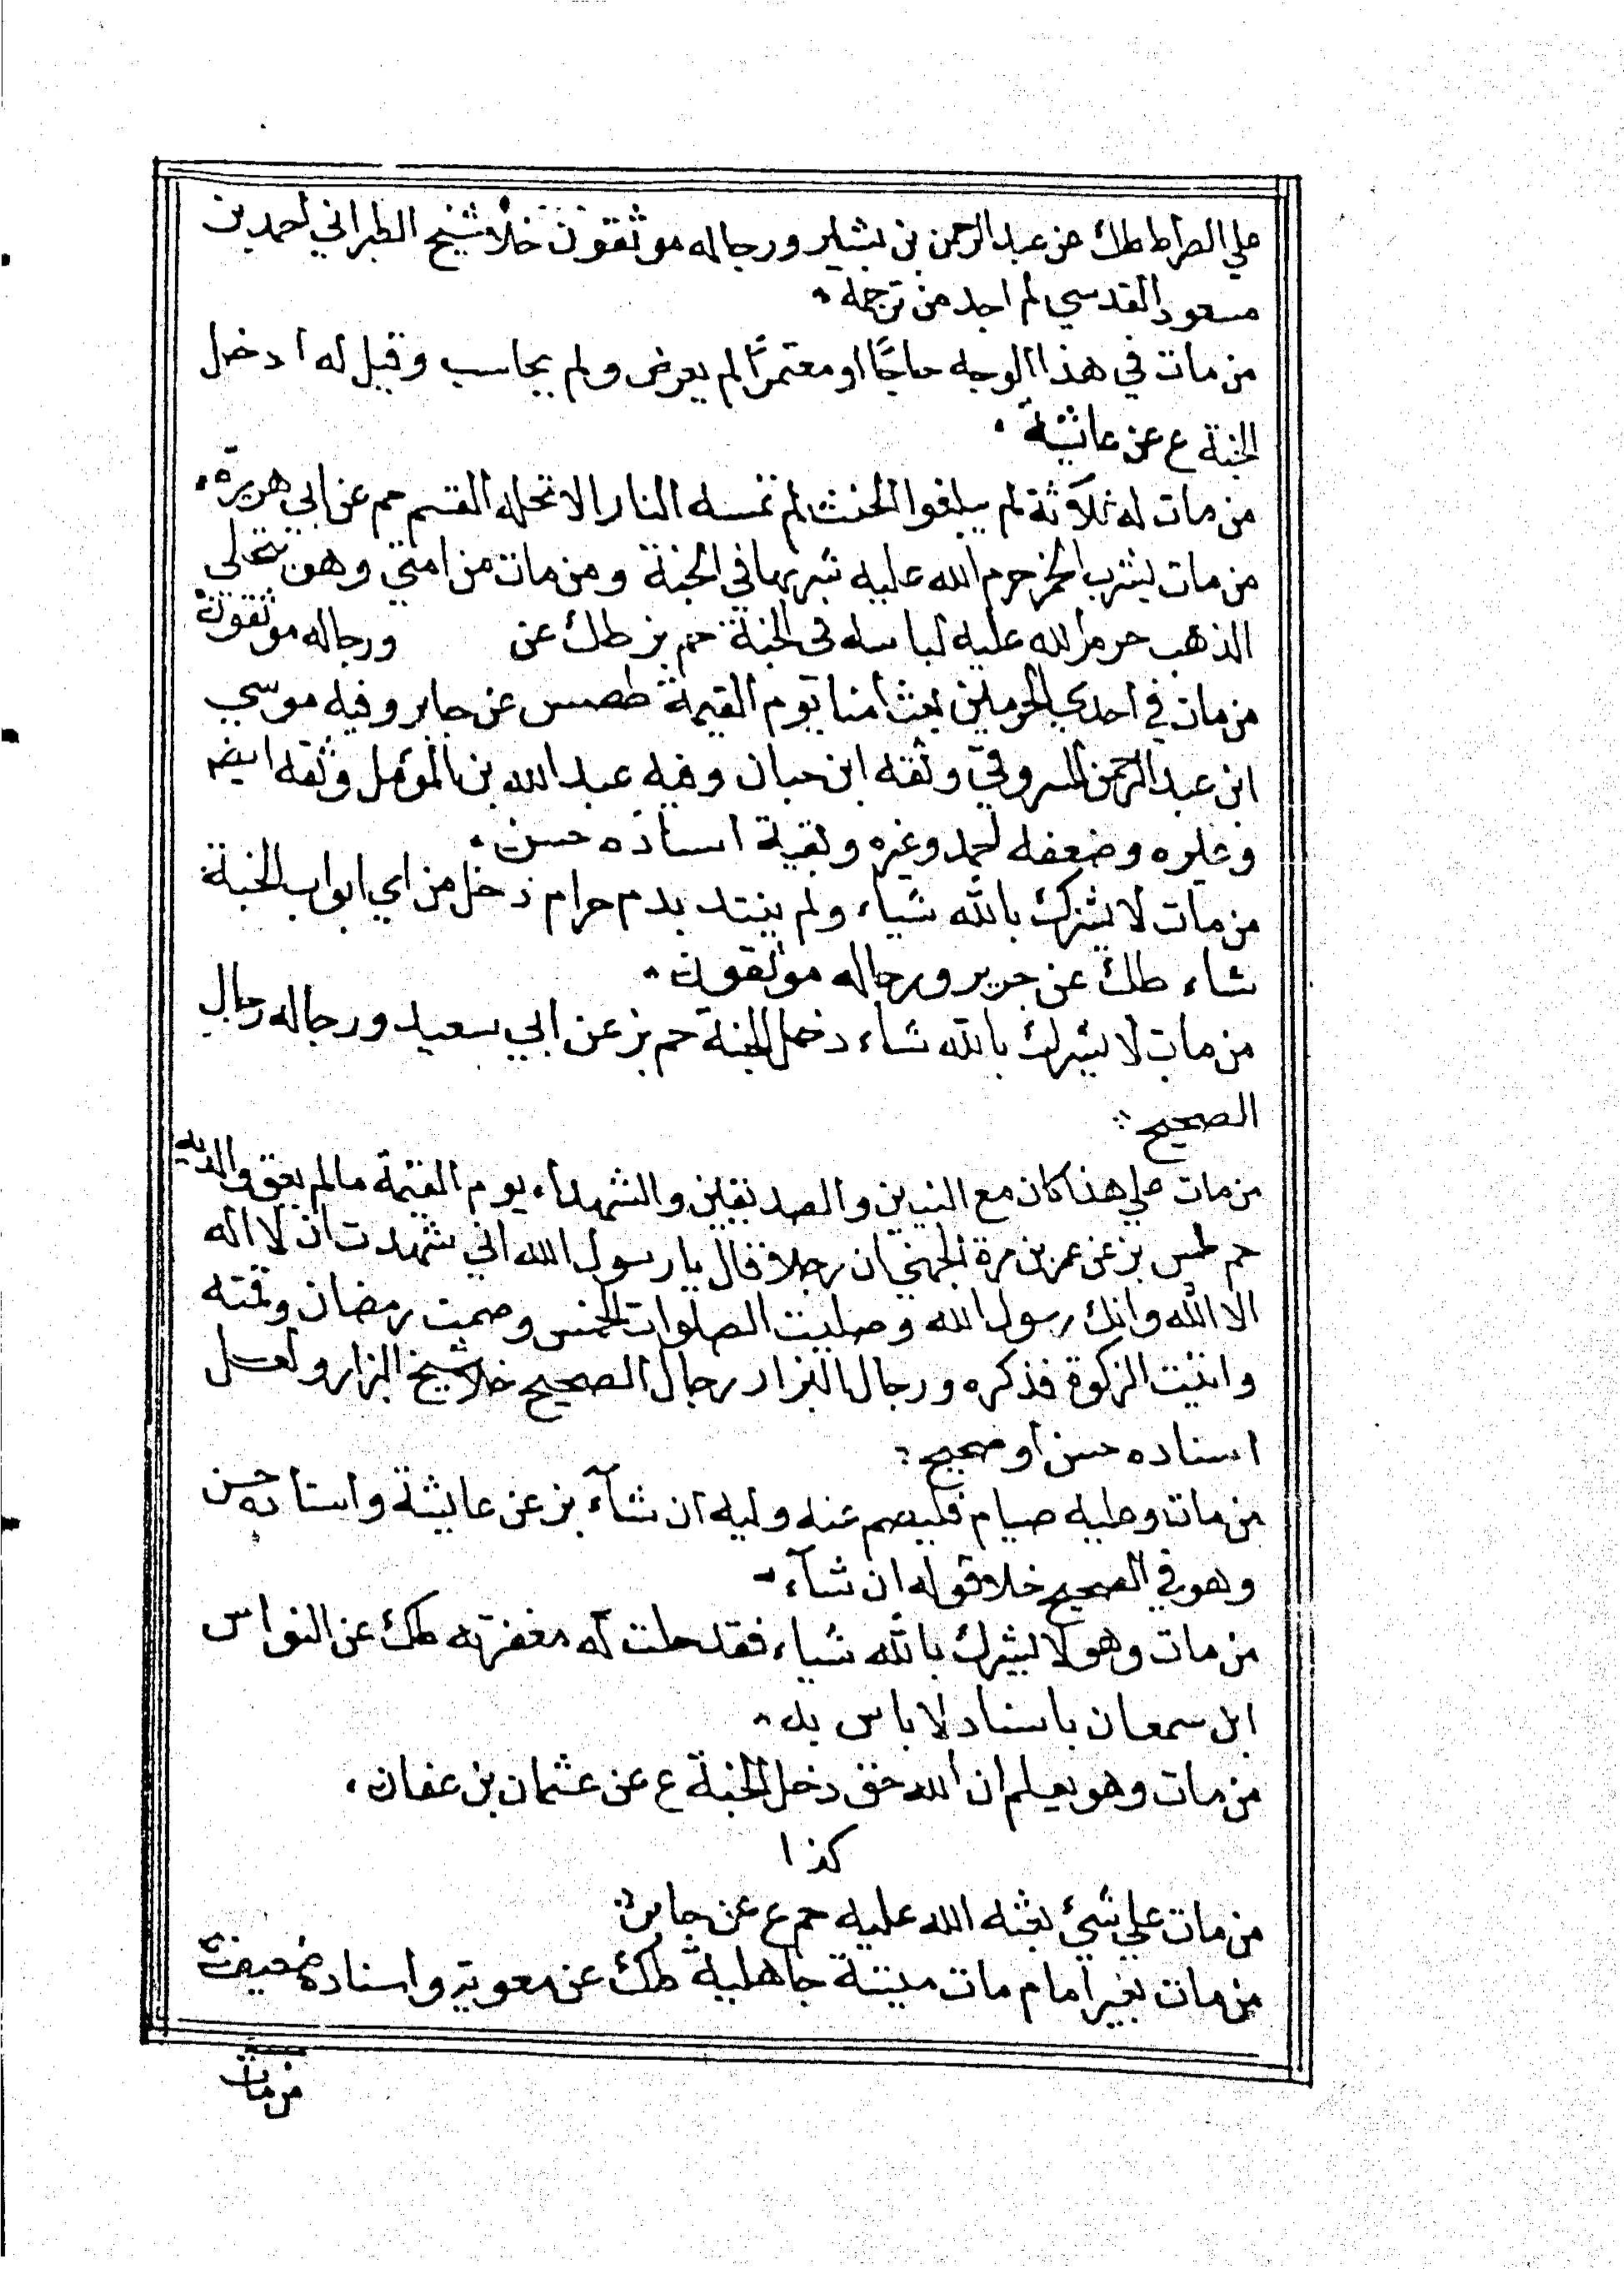 علي الصراط طك عن عبد الرحمن بن بشير ورجاله موثقون خلا شيخ الطبراني احمد بن
مسعود المقدسي لم اجد من ترجمه
من مات في هذا الوجه حاجًا او معتمرًا لم يعرض ولم يحاسب وقيل له ادخل
الجنة ع عن عائشة
من مات له ثلاثة لم يبلغوا الحنث لم تمسه النار الا تحله القسم حم عن ابي هريرة
من مات يشرب الخمر حرم الله عليه شربها في الجنة ومن مات من امتي وهو يتحلى
الذهب حرم الله عليه لباسه في الجنة حم بز طك عن ورجاله موثقون
من مات في احدى الحرمين بعث امنا يوم القيمة طصس عن جابر وفيه موسي
ابن عبد الرحمن المسروقي وثقه ابن حبان وفيه عبد الله بن المومل وثقه ايضم
وغيره وضعفه احمد وغيره وبقية اسناده حسن
من مات لا يشرك بالله شياء ولم يتند بدم حرام دخل من اي ابواب الجنة
شاء طك عن جرير ورجاله موثقون
من مات لا يشرك بالله شاء دخل الجنة حم بز عن ابي سعيد ورجاله رجال
الصحيح
من مات علي هذا كان مع النبيين والصديقين والشهداء يوم القيمة مالم يعق والديه
حم طس بز عن عمر بن مرة الجهني ان رجلا قال يا رسول الله اني شهدت ان لا اله
الا الله وانك رسول الله وصليت الصلوات الخمس وصمت رمضان وقمته
واتيت الزكوة فذكره ورجال البزار رجال الصحيح خلا شيخ البزار ولعل
اسناده حسن او صحيح
من مات وعليه صيام فليصم عنه وليه ان شآء بز عن عايشة واسناده حسن
وهو في الصحيح خلا قوله ان شآء
من مات وهو لا يشرك بالله شياء فقد حلت له مغفرته طك عن النواس
ابن سمعان باسناد لا باس به
من مات وهو يعلم ان الله حق دخل الجنة ع عن عثمان بن عفان
كذا
من مات علي شيئ بعثه الله عليه حم ع عن جابر
من مات بغير امام مات ميتة جاهلية طك عن معوية واسناده ضعيف
من مات